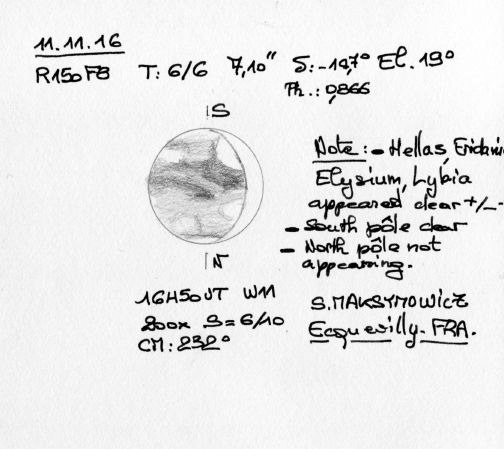 11.11.16
R150F8 T: 6/6 7,10" δ: -19,7° El. 19°
Ph.: 0,866
S
Note: - Hellas, Eridania
Elysium, Lybia
appeared clear +/-
- South pôle clear
- North pôle not
appearing.
N
16H50UT W11
200x S=6/10
CM: 232°
S.MAKSYMOWICZ
Ecquevilly. FRA.